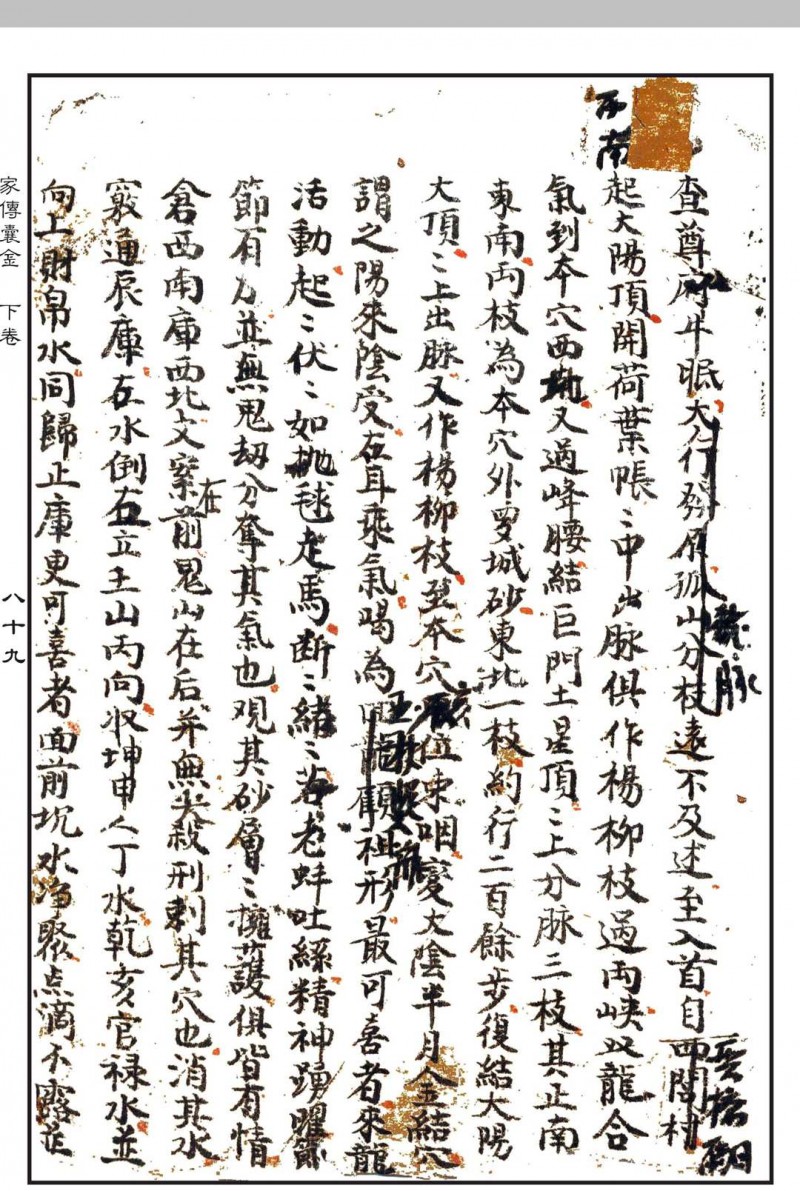 西南
查尊府牛眠大行發原孤山分枝遠不及述至入首自西閻村
起太陽頂開荷葉帳〻中出脉俱作楊柳枝過両峡从龍合
氣到夲穴西又過峰腰結巨門土星頂〻上分脉三枝其正南
東南両枝為夲穴外罗城砂東北一枝約行二百餘步復結太陽
大頂〻上出脉又作楊柳枝至夲穴位束咽變太陰半月金結穴
謂之陽來陰受右耳乘氣喝為顧祖形最可喜者來龍
活動起〻伏〻如抛毬走馬断〻緒〻若老蚌吐絲精神踴躍節
節有力並無鬼刼分奪其氣也观其砂層〻擁護俱皆有情
倉西南庫西北文案在前鬼山在后并無尖殺刑刺其穴也消其水
竅通辰庫左水倒右立壬山丙向收坤申人丁水乾亥官禄水並
向上財帛水同歸正庫更可喜者面前坑水净聚点滴不露並
脉
家傳囊金 下卷
八十九